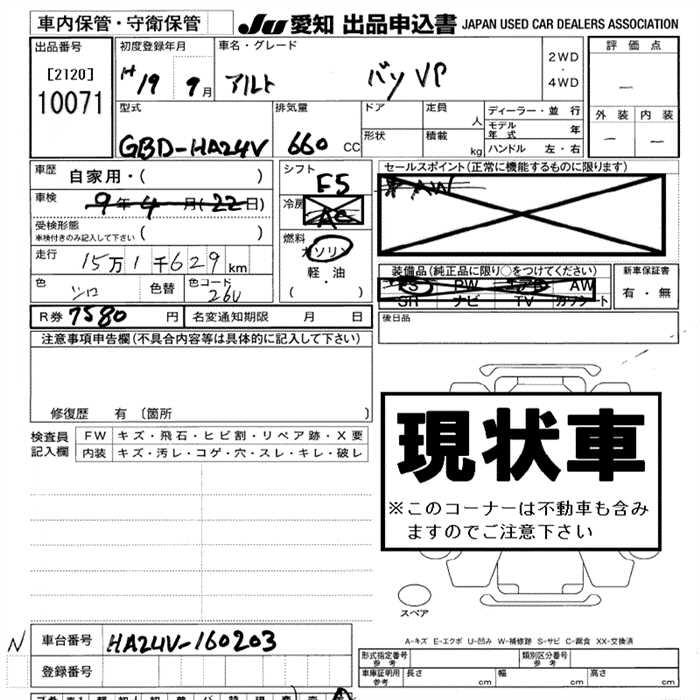 車内保管・守衛保管 JU 愛知 出品申込書 JAPAN USED CAR DEALERS ASSOCIATION
出品番号 初度登録年月 車名・グレード 評価点
[2120] H19 9月 アルト バン VP 2WD・4WD
10071 型式 排気量 ドア 定員 人 ディーラー・並行 外装 内装
モデル年式 年
GBD-HA24V 660 CC 形状 積載 kg ハンドル 左・右
車歴 自家用・( ) シフト F5 セールスポイント(正常に機能するものに限ります)
車検 9年4月(22日) 冷房 AC AW
受検形態 ( )
車検付きのみ記入して下さい
燃料 ガソリン
走行 15万1千629km 軽・油 装備品(純正品に限り○をつけてください) 新車保証書
色 シロ 色替 色コード 26U ( ) PS PW エアB AW 有・無
SR ナビ TV カワシート
R券 7580円 名変通知期限 月 日 後日品
注意事項申告欄(不具合内容等は具体的に記入して下さい)
修復歴 有〔箇所 〕
検査員記入欄 FW キズ・飛石・ヒビ割・リペア跡・X要
内装 キズ・汚レ・コゲ・穴・スレ・キレ・破レ
現状車
※このコーナーは不動車も含み
ますのでご注意下さい
スペア
A-キズ E-エクボ U-凹み W-補修跡 S-サビ C-腐食 XX-交換済
N 車台番号 HA24V-160203
登録番号
形式指定番号 参考 類別区分番号 参考
車庫証明用 参考 長さ cm 幅 cm 高さ cm